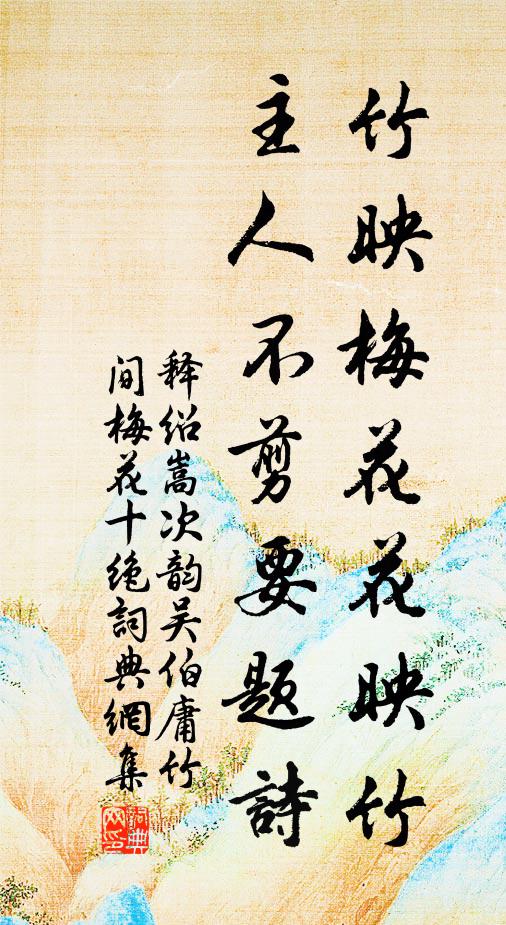 竹映梅花花映竹
主人不剪要题詩
释绍嵩次韵吴伯庸竹
间梅花十绝詞典網集
詞典